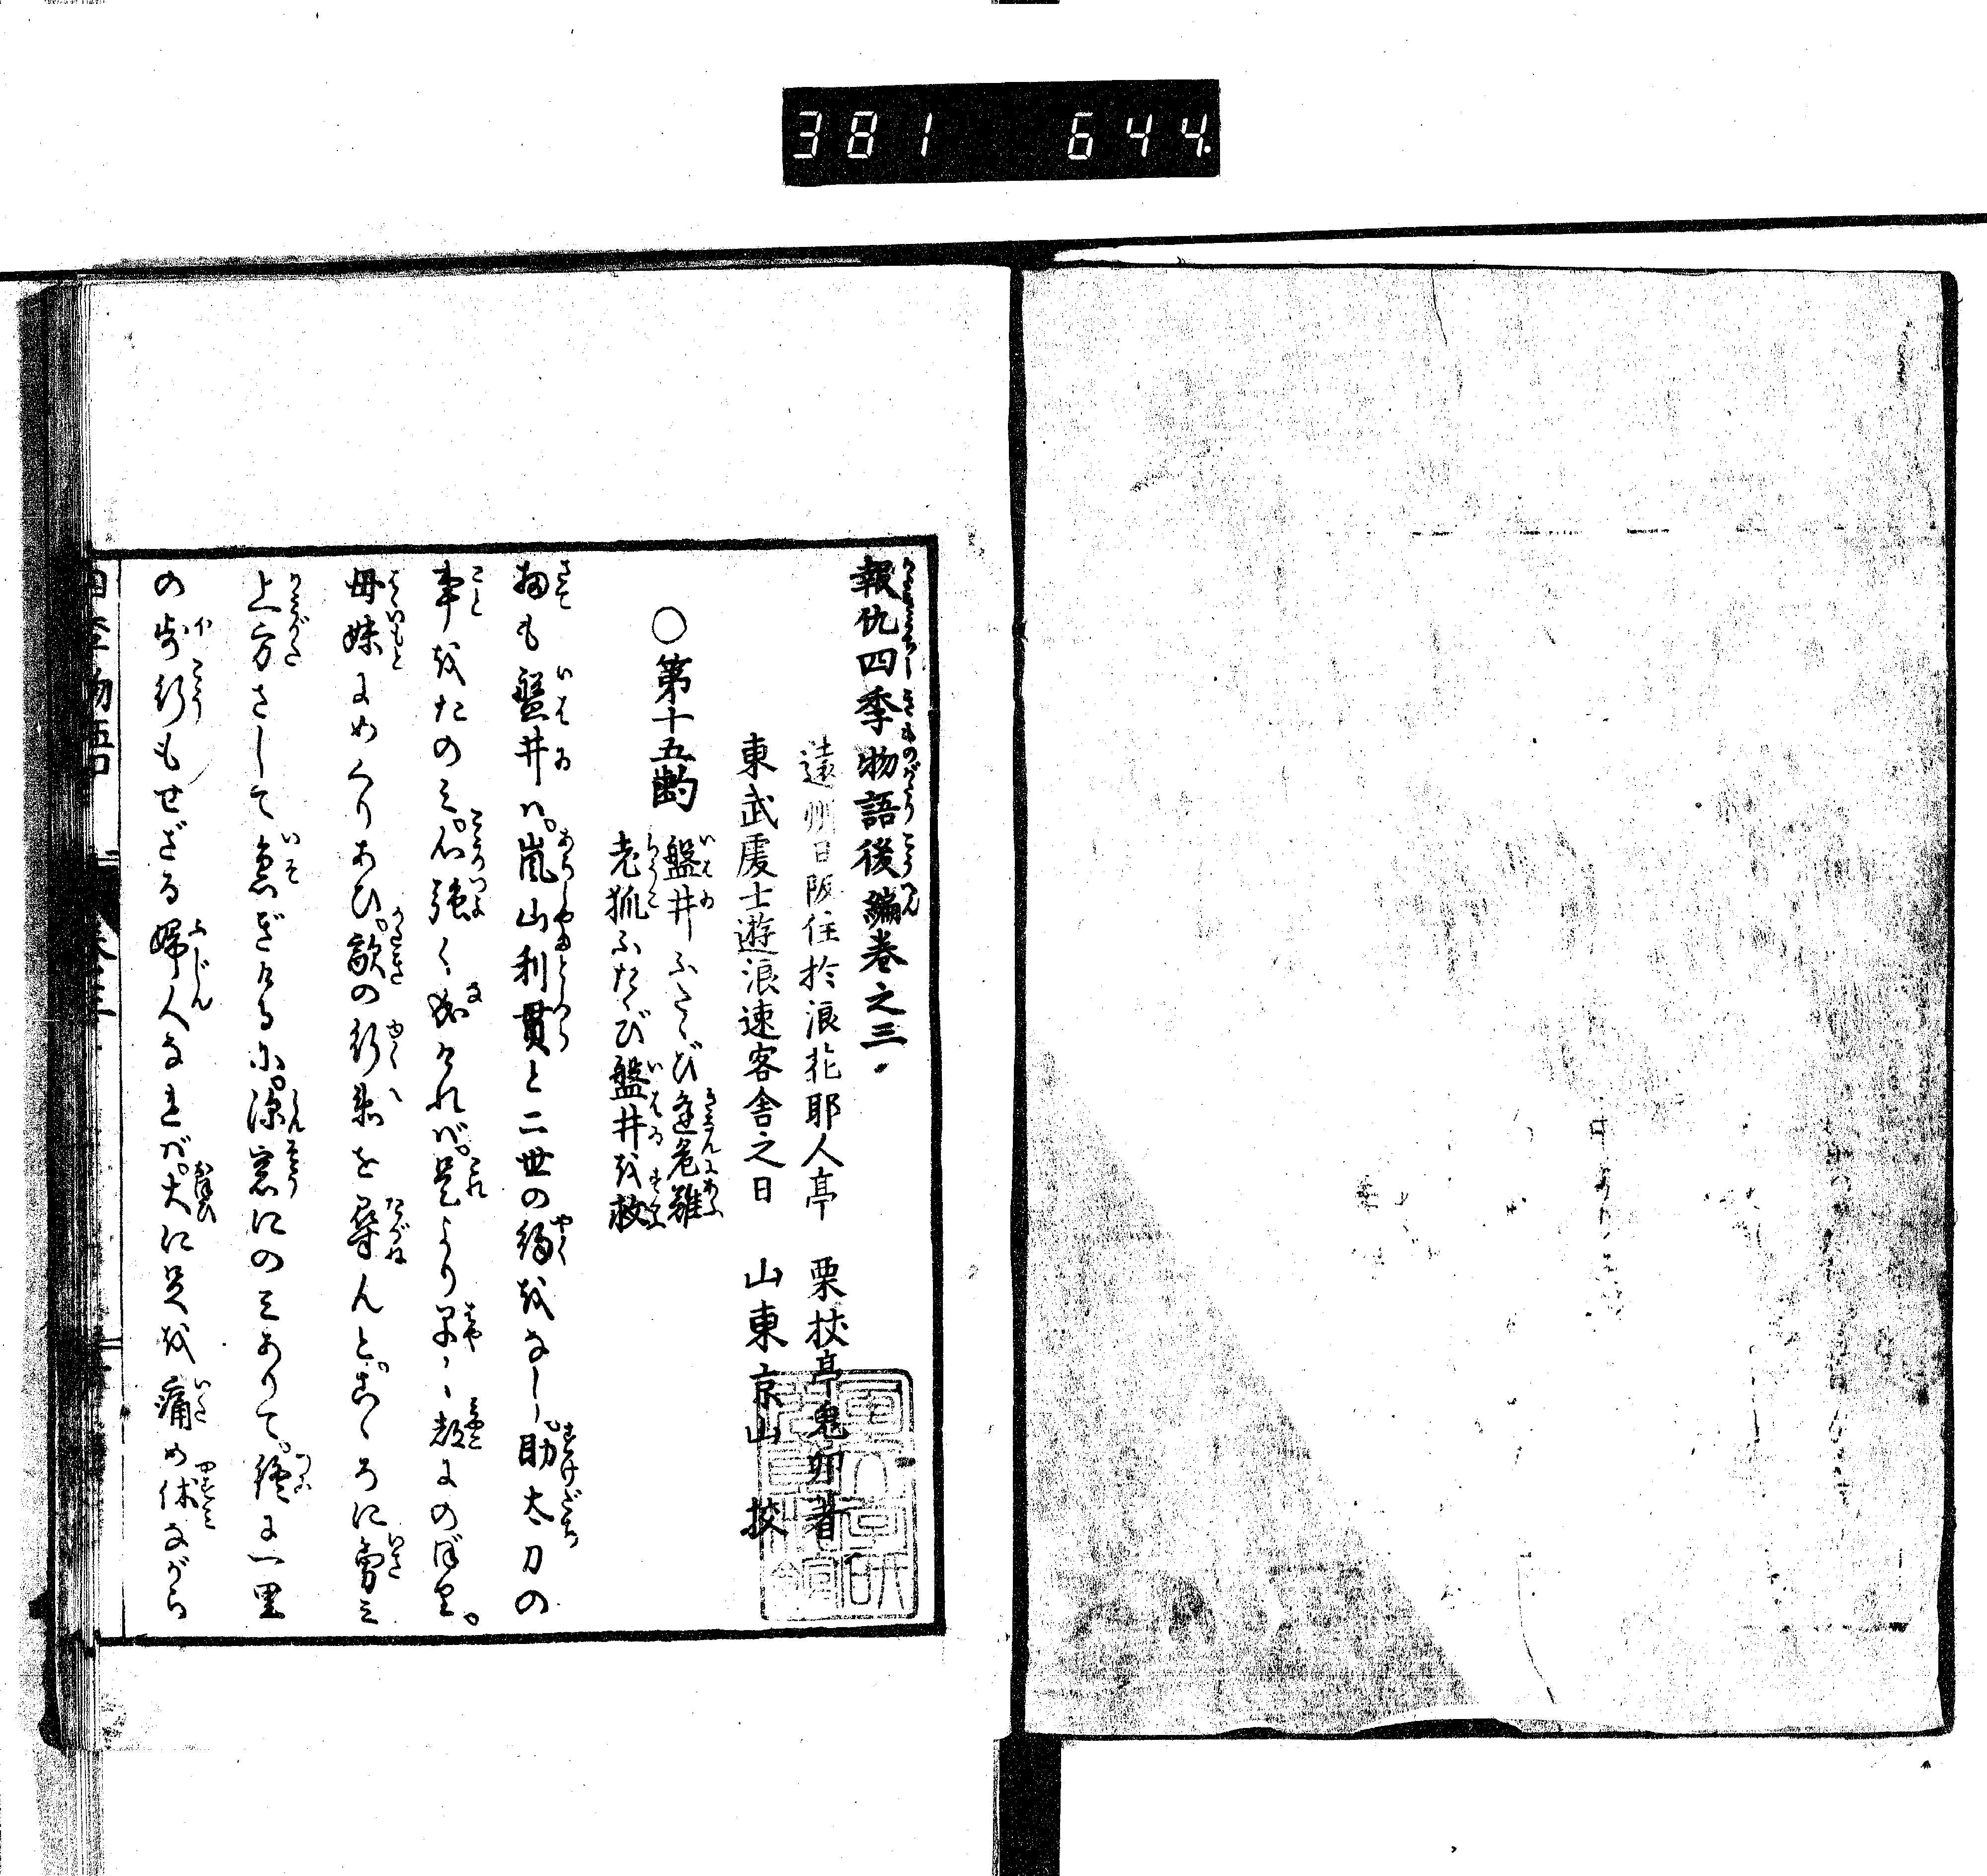 381 644.
報仇四季物語後編巻之三
遠州日阪住於浪花耶人亭 栗杖亭鬼卵著
東武處士遊浪速客舎之日 山東京山 校
○第十五齣
盤井ふたゝび逢危難
老狐ふたゝび盤井を救
扨も盤井ハ。嵐山利貫と二世の約をなし。助太刀の
事をたのミ。心強く成けれバ。是より早〻都にのぼり。
母妹にめぐりあひ。敵の行衛を尋んと。こゝろに勇ミ
上方さして急ぎけるに。深窓にのミありて。終に一里
の歩行もせざる婦人なれバ。大に足を痛め休ながら
四季物語